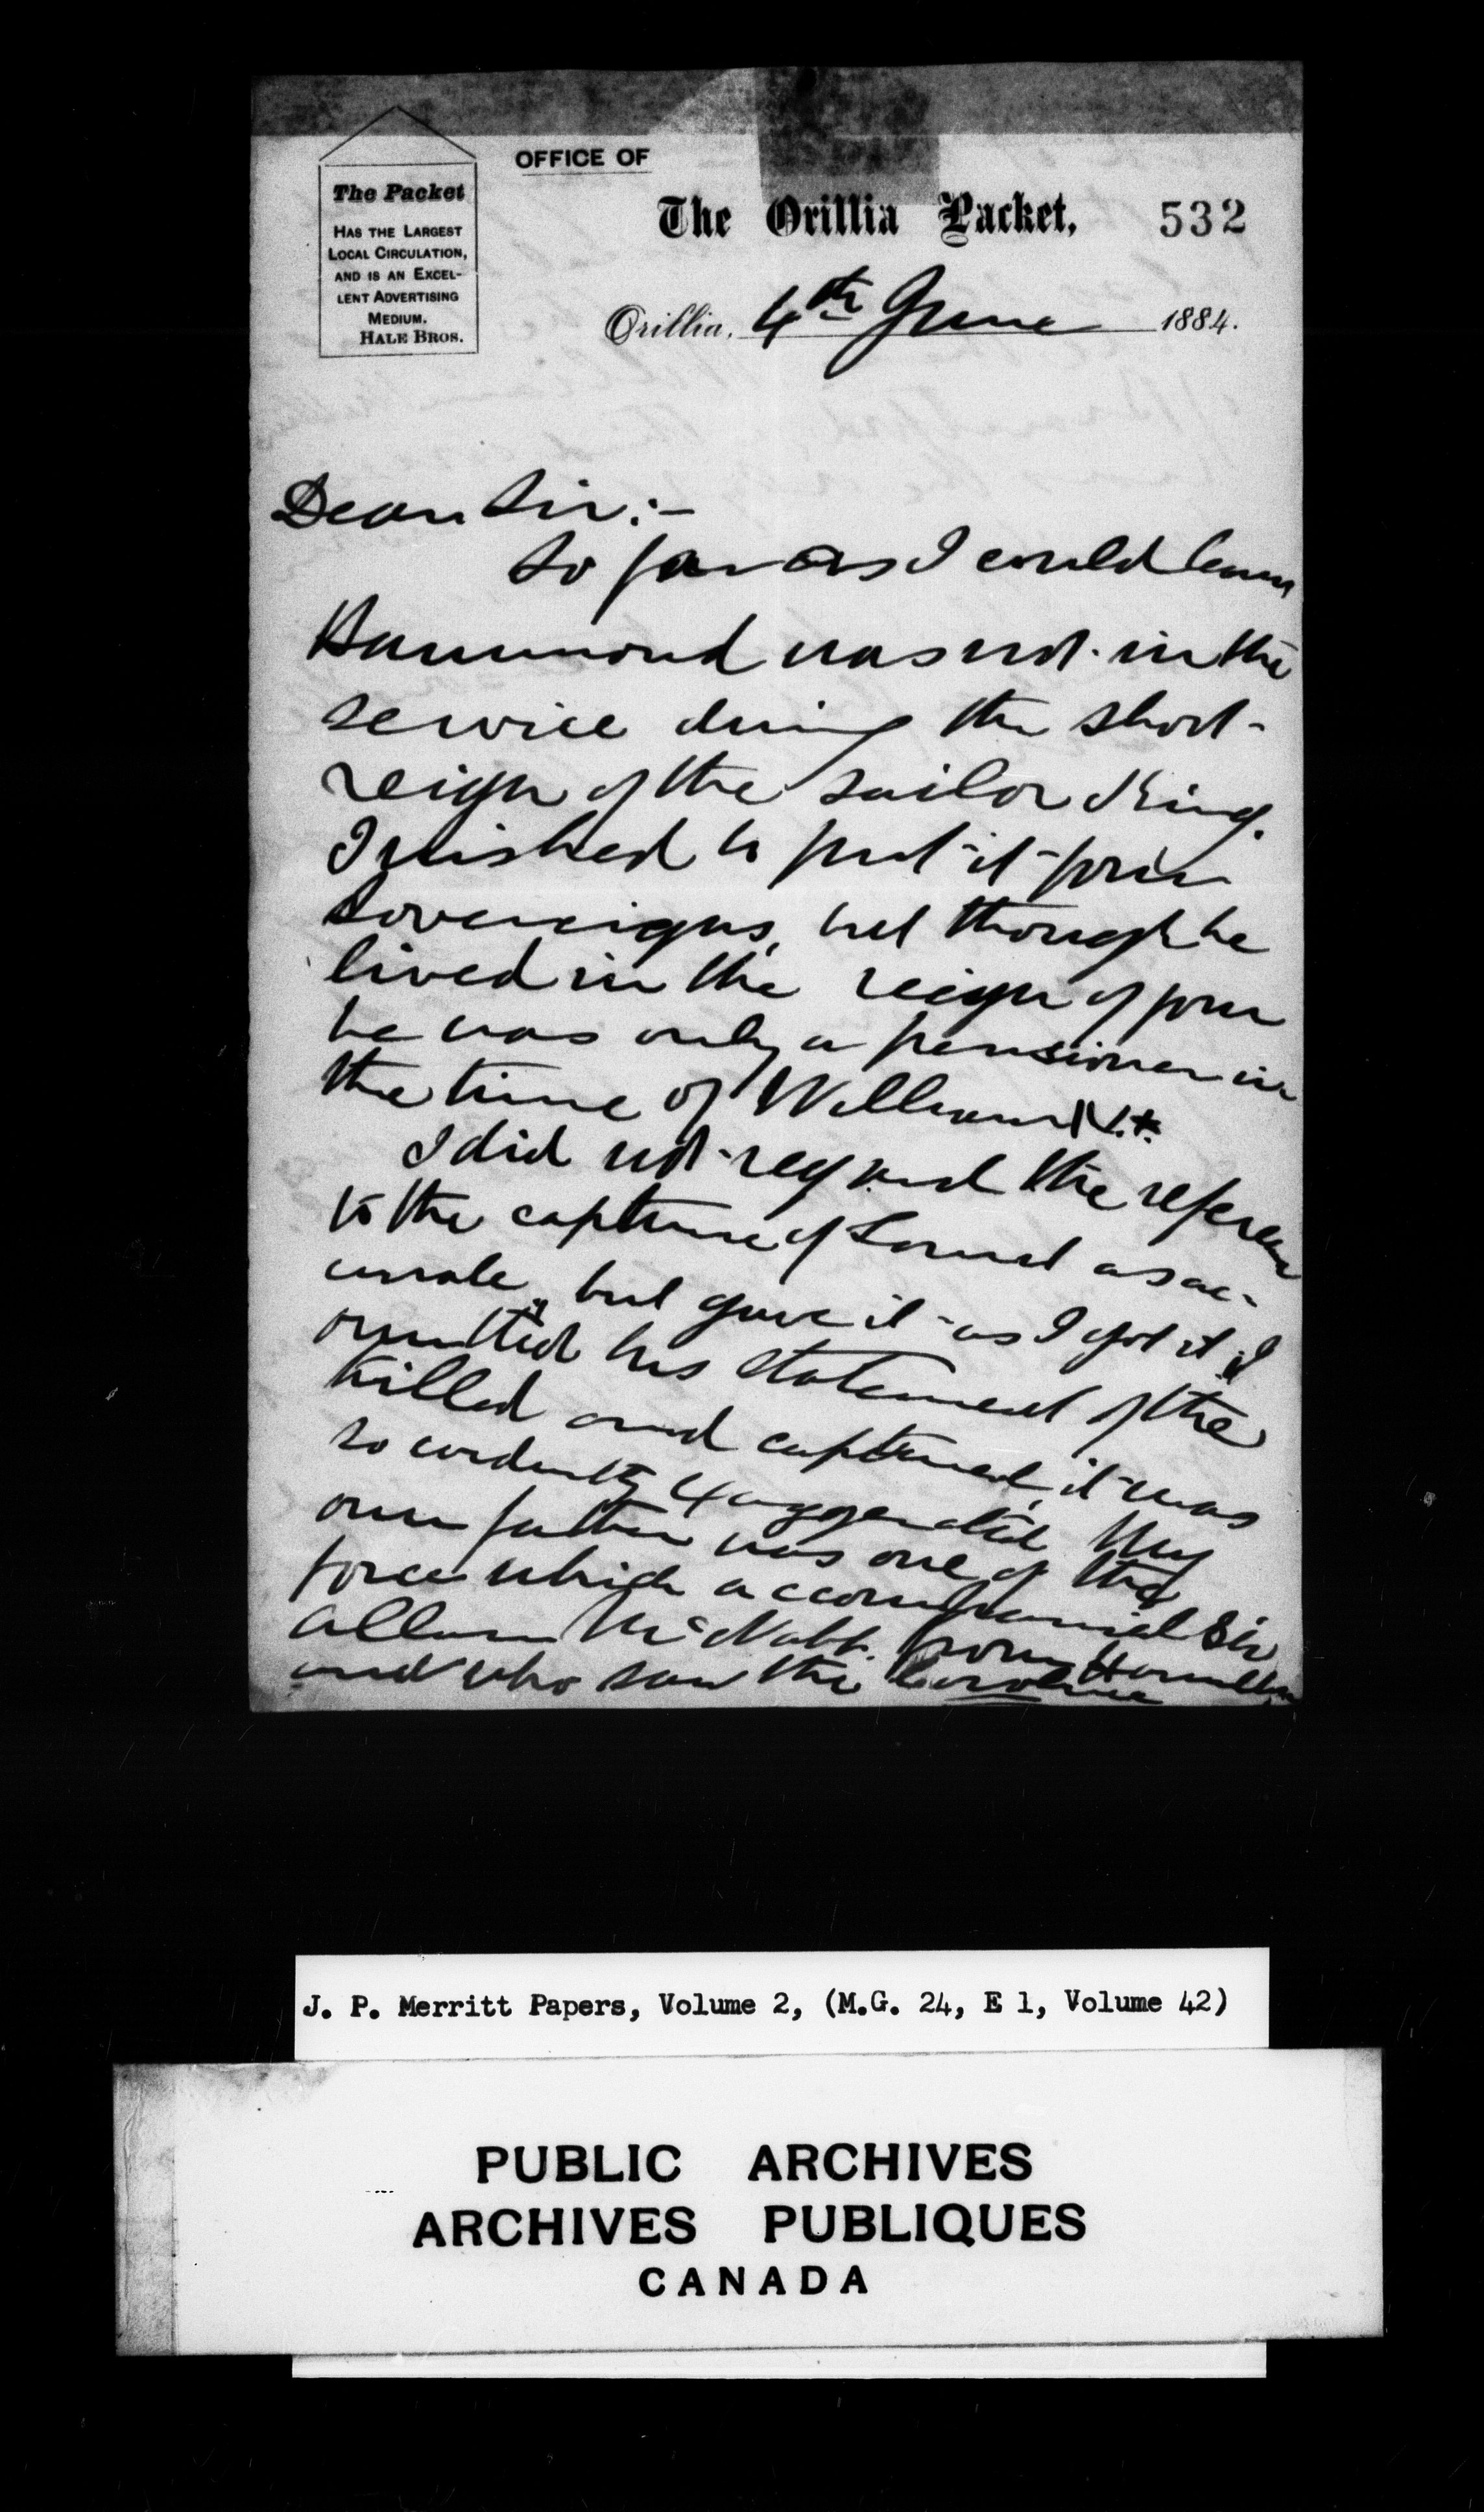 The Packet
HAS THE LARGEST
LOCAL CIRCULATION,
AND IS AN EXCEL-
LENT ADVERTISING
MEDIUM.
HALE BROS.
OFFICE OF
The Orillia Packet,
532
Orillia, 4th June 1884.
Dear Sir:-
So far as I could learn
Hammond was not in the
service during the short
reign of the sailor King.
I wished to put it four
sovereigns, but though he
lived in the reign of four
he was only a pensioner in
the time of William IV.
I did not regard the referen
to the capture of as ac-
curate, but gave it as I got it; I
omitted his statement of the
killed and captured, it was
so evidently exaggerated. My
own father was one of the
force which accompanied Sir
Allan McNabb from Hamilton,
and who saw the Caroline
J. P. Merritt Papers, Volume 2, (M.G. 24, E 1, Volume 42)
PUBLIC ARCHIVES
ARCHIVES PUBLIQUES
CANADA